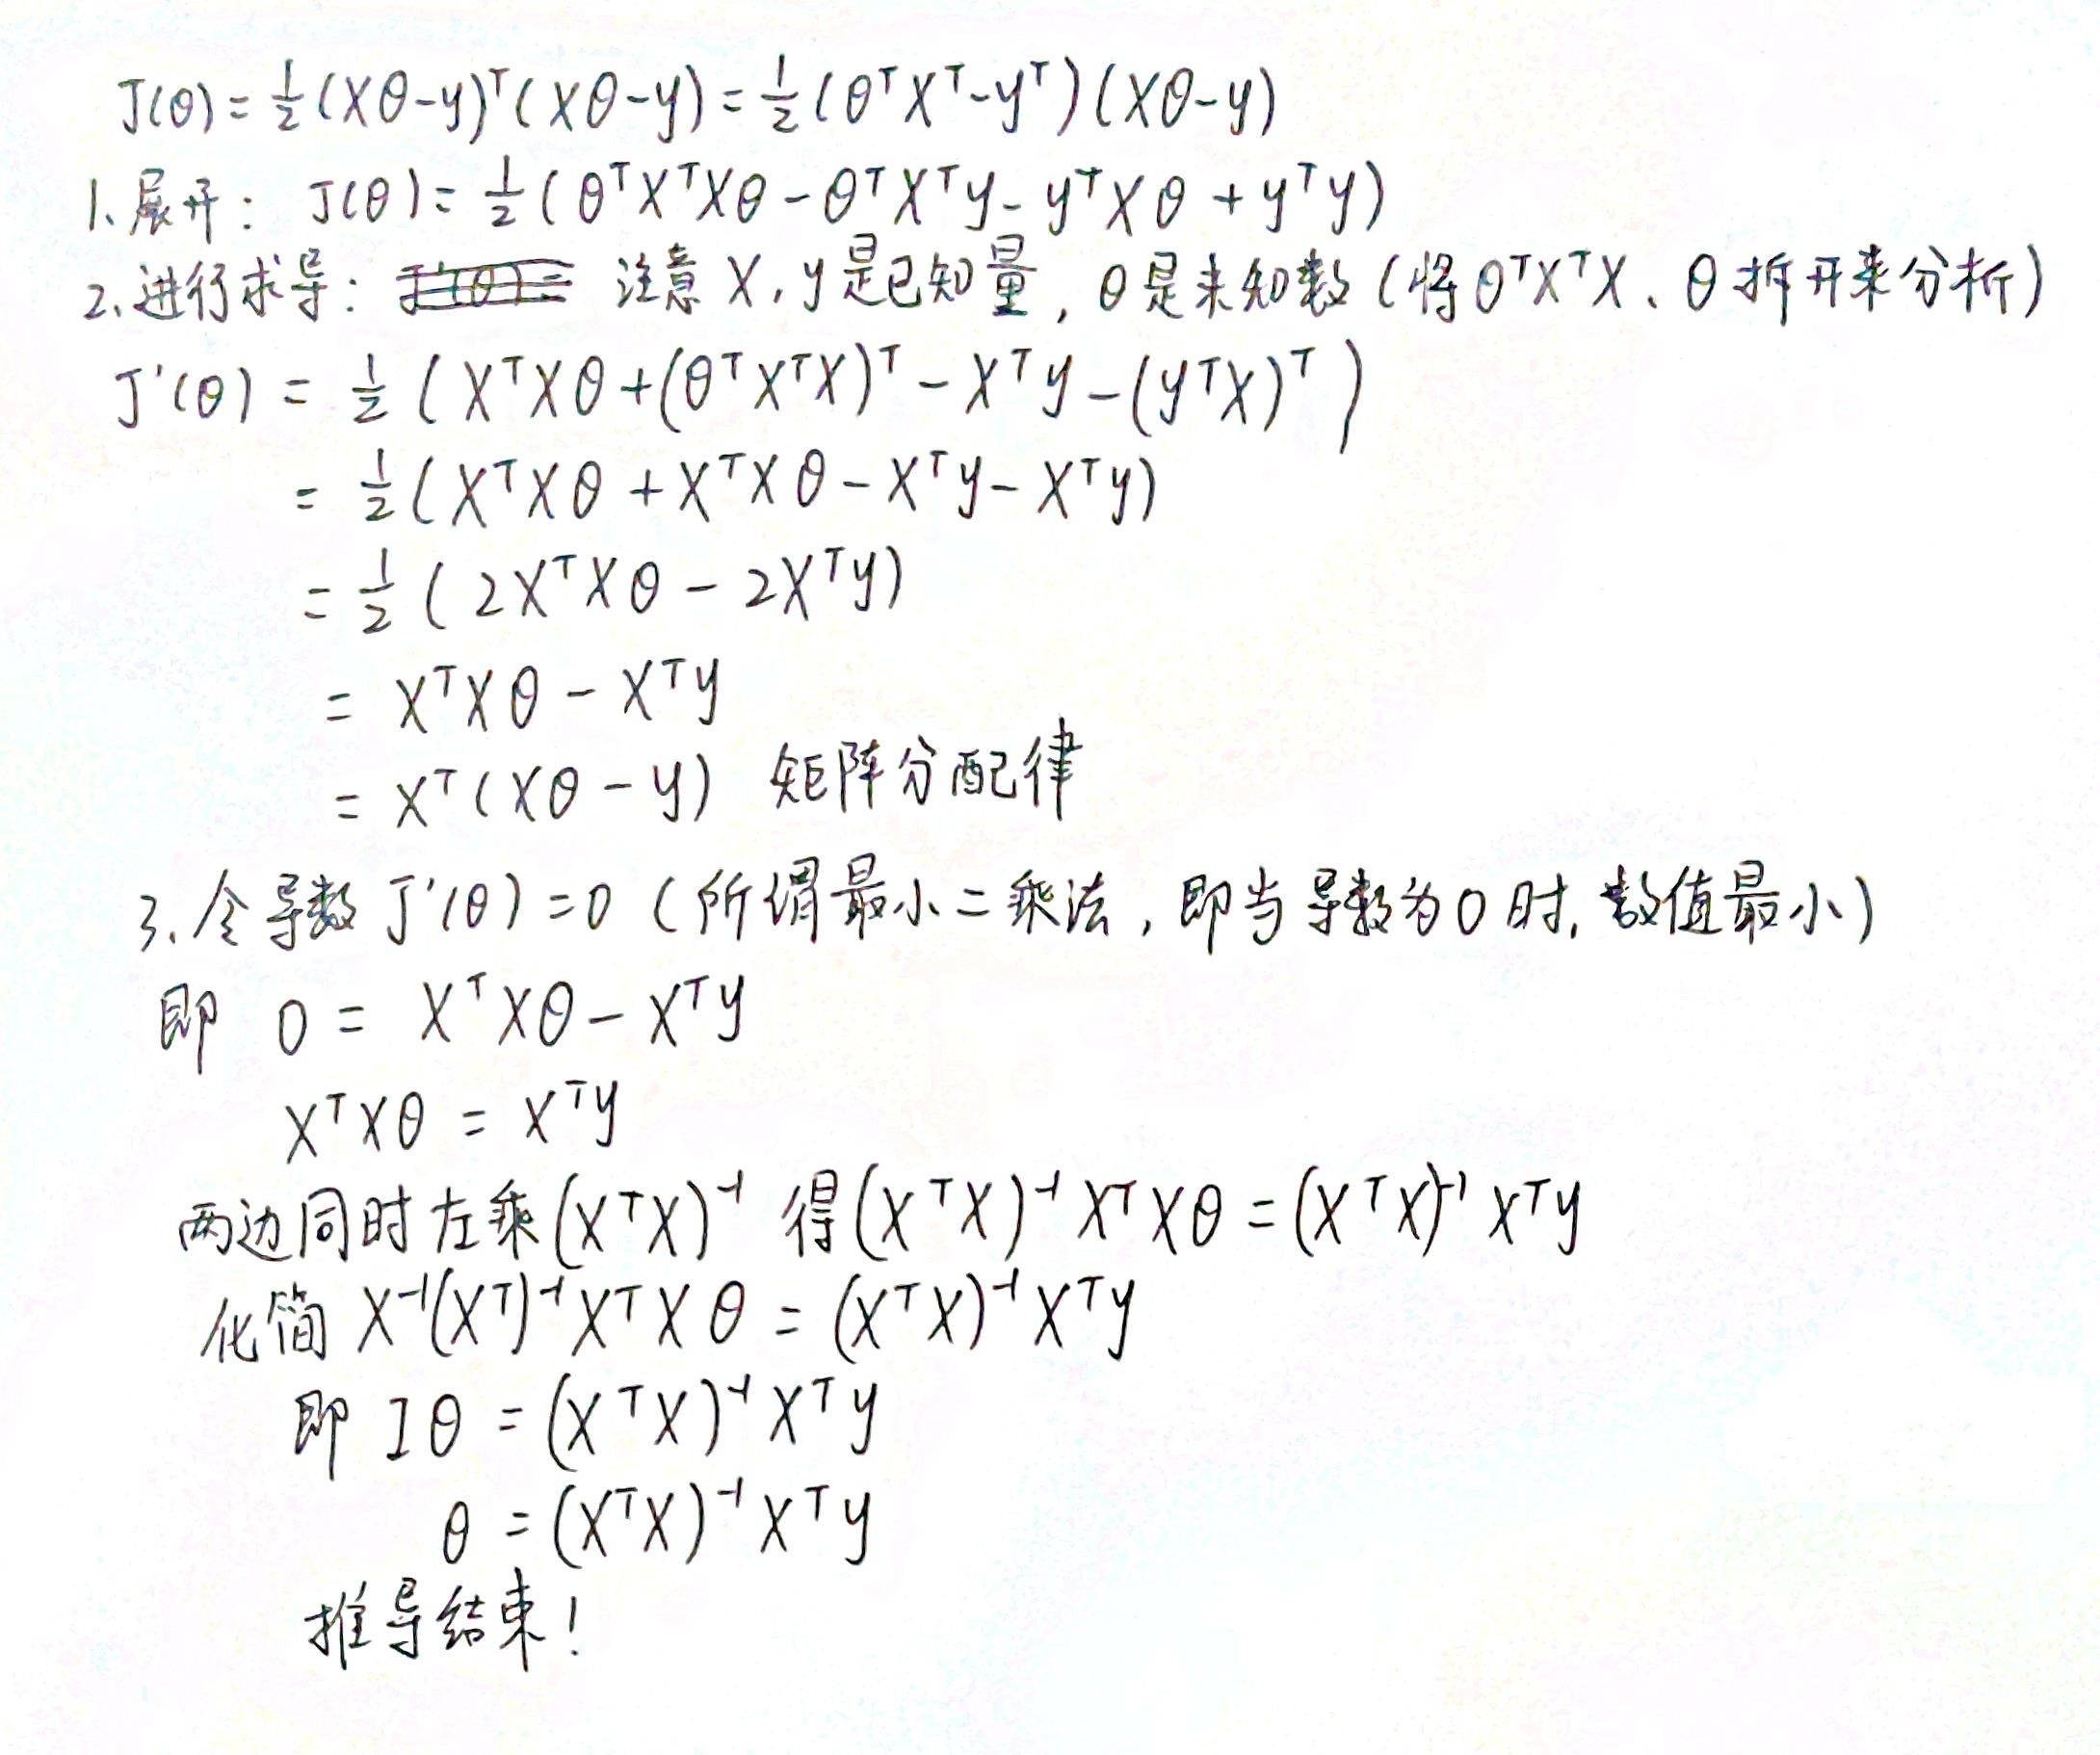 J(θ) = 1/2 (Xθ-y)ᵀ(Xθ-y) = 1/2 (θᵀXᵀ-yᵀ)(Xθ-y)
1、展开: J(θ) = 1/2 (θᵀXᵀXθ - θᵀXᵀy - yᵀXθ + yᵀy)
2、进行求导: 注意 X, y是已知量, θ是未知数 (将θᵀXᵀX、θ拆开来分析)
J'(θ) = 1/2 (XᵀXθ + (θᵀXᵀX)ᵀ - Xᵀy - (yᵀX)ᵀ)
= 1/2 (XᵀXθ + XᵀXθ - Xᵀy - Xᵀy)
= 1/2 (2XᵀXθ - 2Xᵀy)
= XᵀXθ - Xᵀy
= Xᵀ(Xθ - y) 矩阵分配律
3、令导数 J'(θ) = 0 (所谓最小二乘法, 即当导数为0时, 数值最小)
即 0 = XᵀXθ - Xᵀy
XᵀXθ = Xᵀy
两边同时左乘(XᵀX)⁻¹ 得(XᵀX)⁻¹XᵀXθ = (XᵀX)⁻¹Xᵀy
化简 X⁻¹(Xᵀ)⁻¹XᵀXθ = (XᵀX)⁻¹Xᵀy
即 Iθ = (XᵀX)⁻¹Xᵀy
θ = (XᵀX)⁻¹Xᵀy
推导结束!